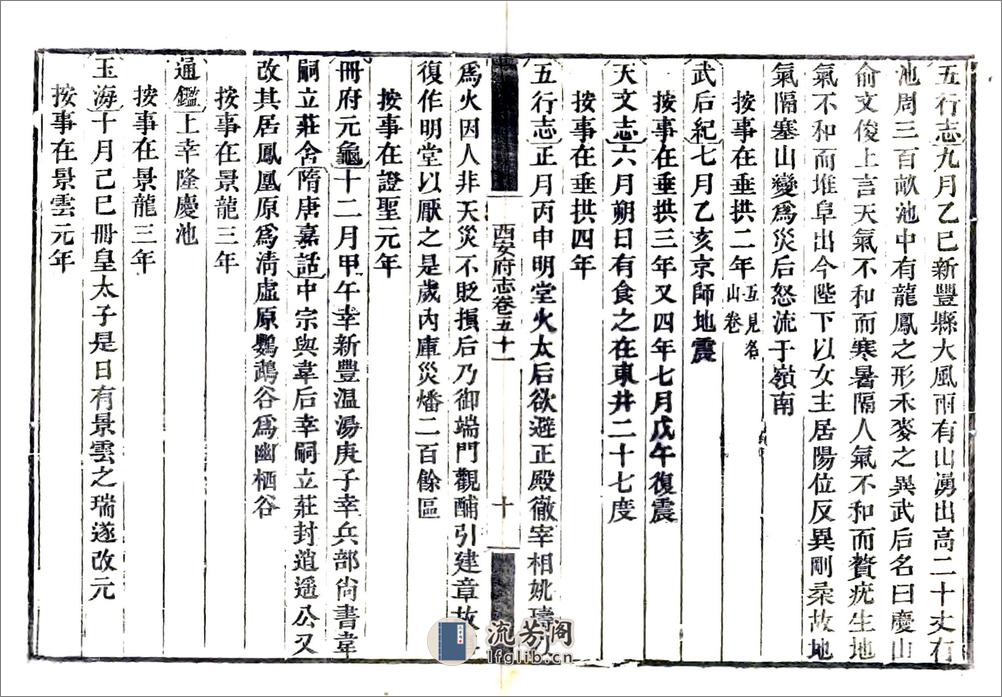 五行志九月乙巳新豐縣大風雨有山湧出高二十丈有
池周三百畝池中有龍鳳之形禾麥之異武后名曰慶山
俞文俊上言天氣不和而寒暑隔人氣不和而贅疣生地
氣不和而堆阜出今陛下以女主居陽位反異剛柔故地
氣隔塞山變爲災后怒流于嶺南
按事在垂拱二年互見名山卷
武后紀七月乙亥京師地震
按事在垂拱三年又四年七月戊午復震
天文志六月朔日有食之在東井二十七度
按事在垂拱四年
五行志正月丙申明堂火太后欲避正殿徹宰相姚璹
西安府志卷五十一
十
爲火因人非天災不貶損后乃御端門觀酺引建章故
復作明堂以厭之是歲內庫災燔二百餘區
按事在證聖元年
冊府元龜十二月甲午幸新豐温湯庚子幸兵部尙書韋
嗣立莊舍隋唐嘉話中宗與韋后幸嗣立莊封逍遥公又
改其居鳳凰原爲清虛原鸚鵡谷爲幽栖谷
按事在景龍三年
通鑑上幸隆慶池
按事在景龍三年
玉海十月己巳冊皇太子是日有景雲之瑞遂改元
按事在景雲元年
流芳阁
lfglib.cn